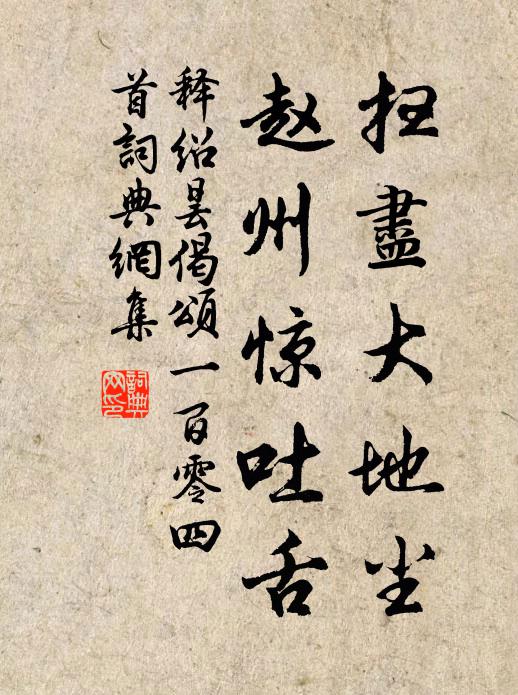 扫盡大地尘
赵州惊吐舌
释绍昙偈頌一百零四
首詞典網集
詞典
网印